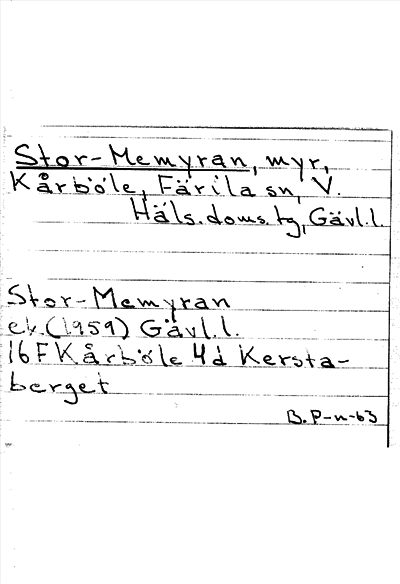 Stor-Memyran, myr,
Kårböle, Färila sn, V.
Häls. doms. tg, Gävl.l.
Stor-Memyran
ek. (1959) Gävl.l.
16 F Kårböle 4d Kersta-
berget
B. P-n-63